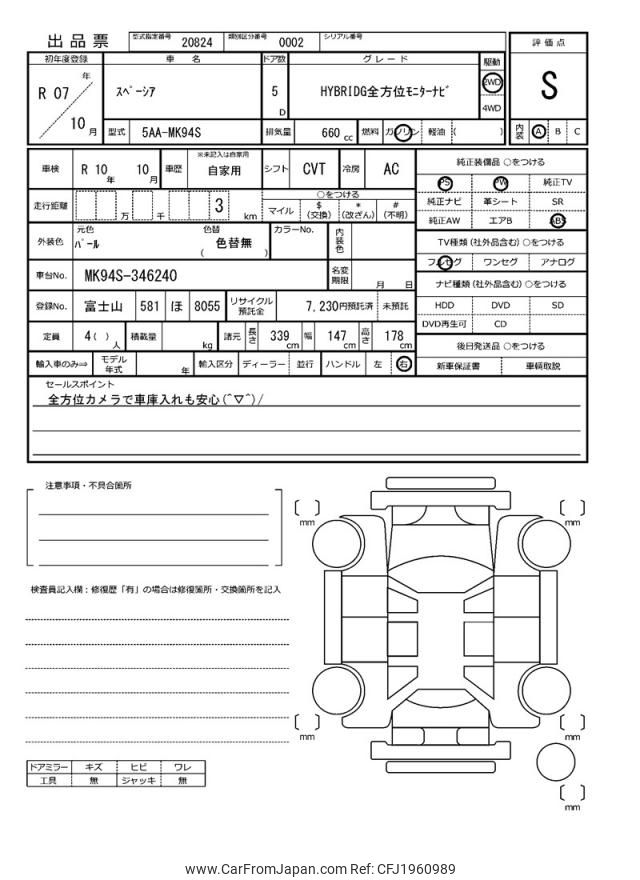 出品票 型式指定番号 20824 類別区分番号 0002 シリアル番号
初年度登録 車名 ドア数 グレード 駆動 評価点
R 07 年 10 月 スペーシア 5 D HYBRIDG全方位モニターナビ 2WD 4WD S
型式 5AA-MK94S 排気量 660 cc 燃料 ガソリン 軽油 ( ) 内装 A B C
車検 R 10 年 10 月 車歴 ※未記入は自家用 自家用 シフト CVT 冷房 AC 純正装備品 ○をつける
PS PW 純正TV
走行距離 万 千 3 km ○をつける マイル $ (交換) * (改ざん) # (不明) 純正ナビ 革シート SR
純正AW エアB ABS
外装色 元色 パール 色替 色替無 ( ) カラーNo. 内装色 TV種類 (社外品含む) ○をつける
フルセグ ワンセグ アナログ
車台No. MK94S-346240 名変期限 月 日 ナビ種類 (社外品含む) ○をつける
登録No. 富士山 581 ほ 8055 リサイクル預託金 7,230円預託済 未預託 HDD DVD SD
DVD再生可 CD
定員 4( ) 人 積載量 kg 諸元 長さ 339 cm 幅 147 cm 高さ 178 cm 後日発送品 ○をつける
輸入車のみ⇒ モデル年式 年 輸入区分 ディーラー 並行 ハンドル 左 右 新車保証書 車輌取説
セールスポイント
全方位カメラで車庫入れも安心(^▽^)/
注意事項・不具合箇所
mm mm
検査員記入欄：修復歴「有」の場合は修復箇所・交換箇所を記入
mm mm
ドアミラー キズ ヒビ ワレ
工具 無 ジャッキ 無
mm
www.CarFromJapan.com Ref: CFJ1960989